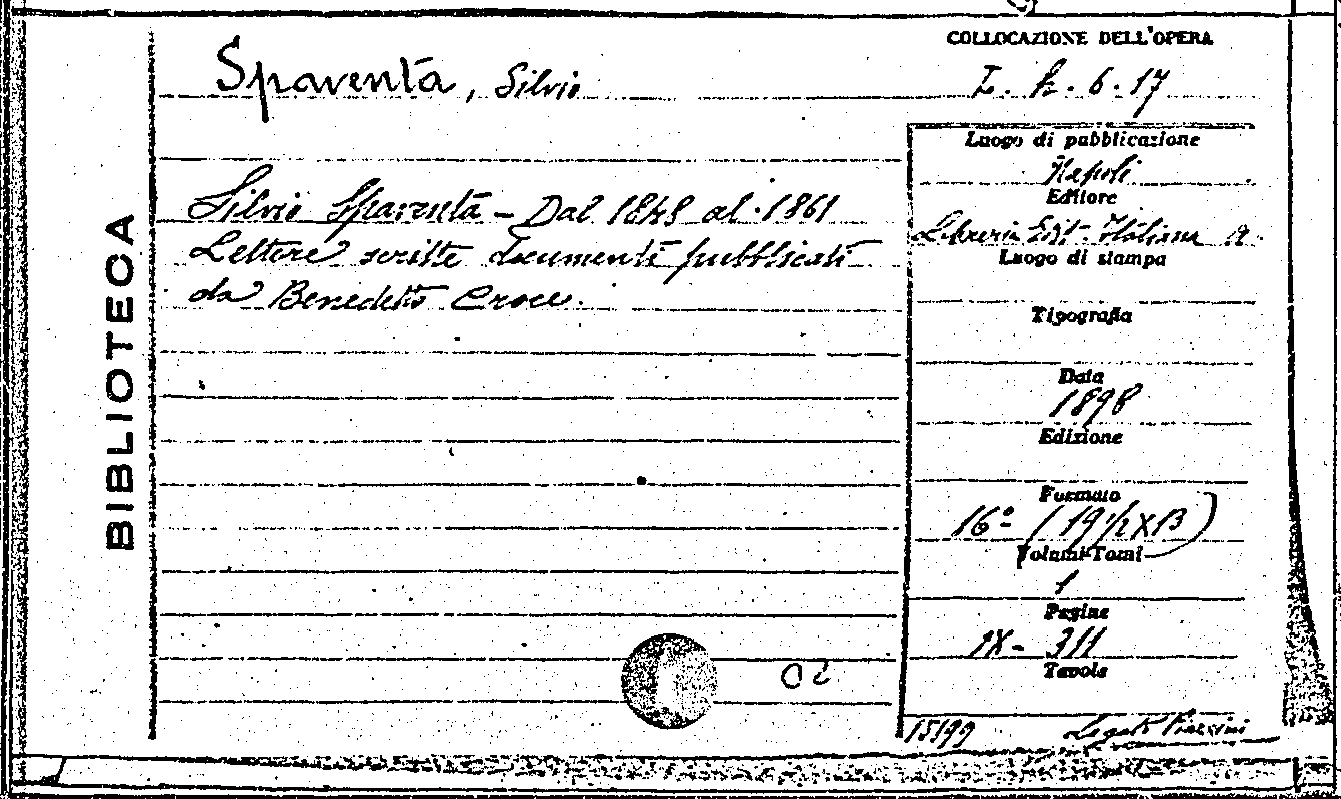 BIBLIOTECA
Spaventa, Silvio
Silvio Spaventa - Dal 1848 al 1861
Lettere scritte documenti pubblicati
da Benedetto Croce.
COLLOCAZIONE DELL'OPERA
I. h. 6. 17
Luogo di pubblicazione
Napoli
Editore
Libreria Edit. Italiana
Luogo di stampa
Tipografia
Data
1898
Edizione
Formato
16º (19 1/2 X 13)
Volumi-Tomi
1
Pagine
IX - 311
Tavole
15199